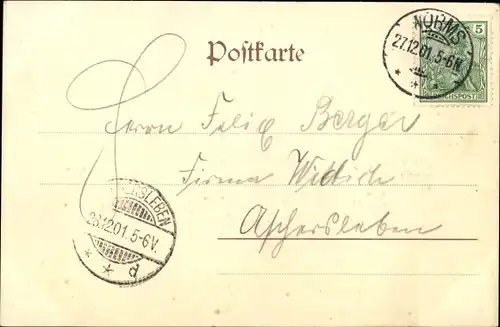 WORMS
27.12.01.5-6N.
5
REICHSPOST
Postkarte
Herrn Felix Berger
Firma Wittich
Aschersleben
ASCHERSLEBEN
28.12.01.5-6V.
* * d